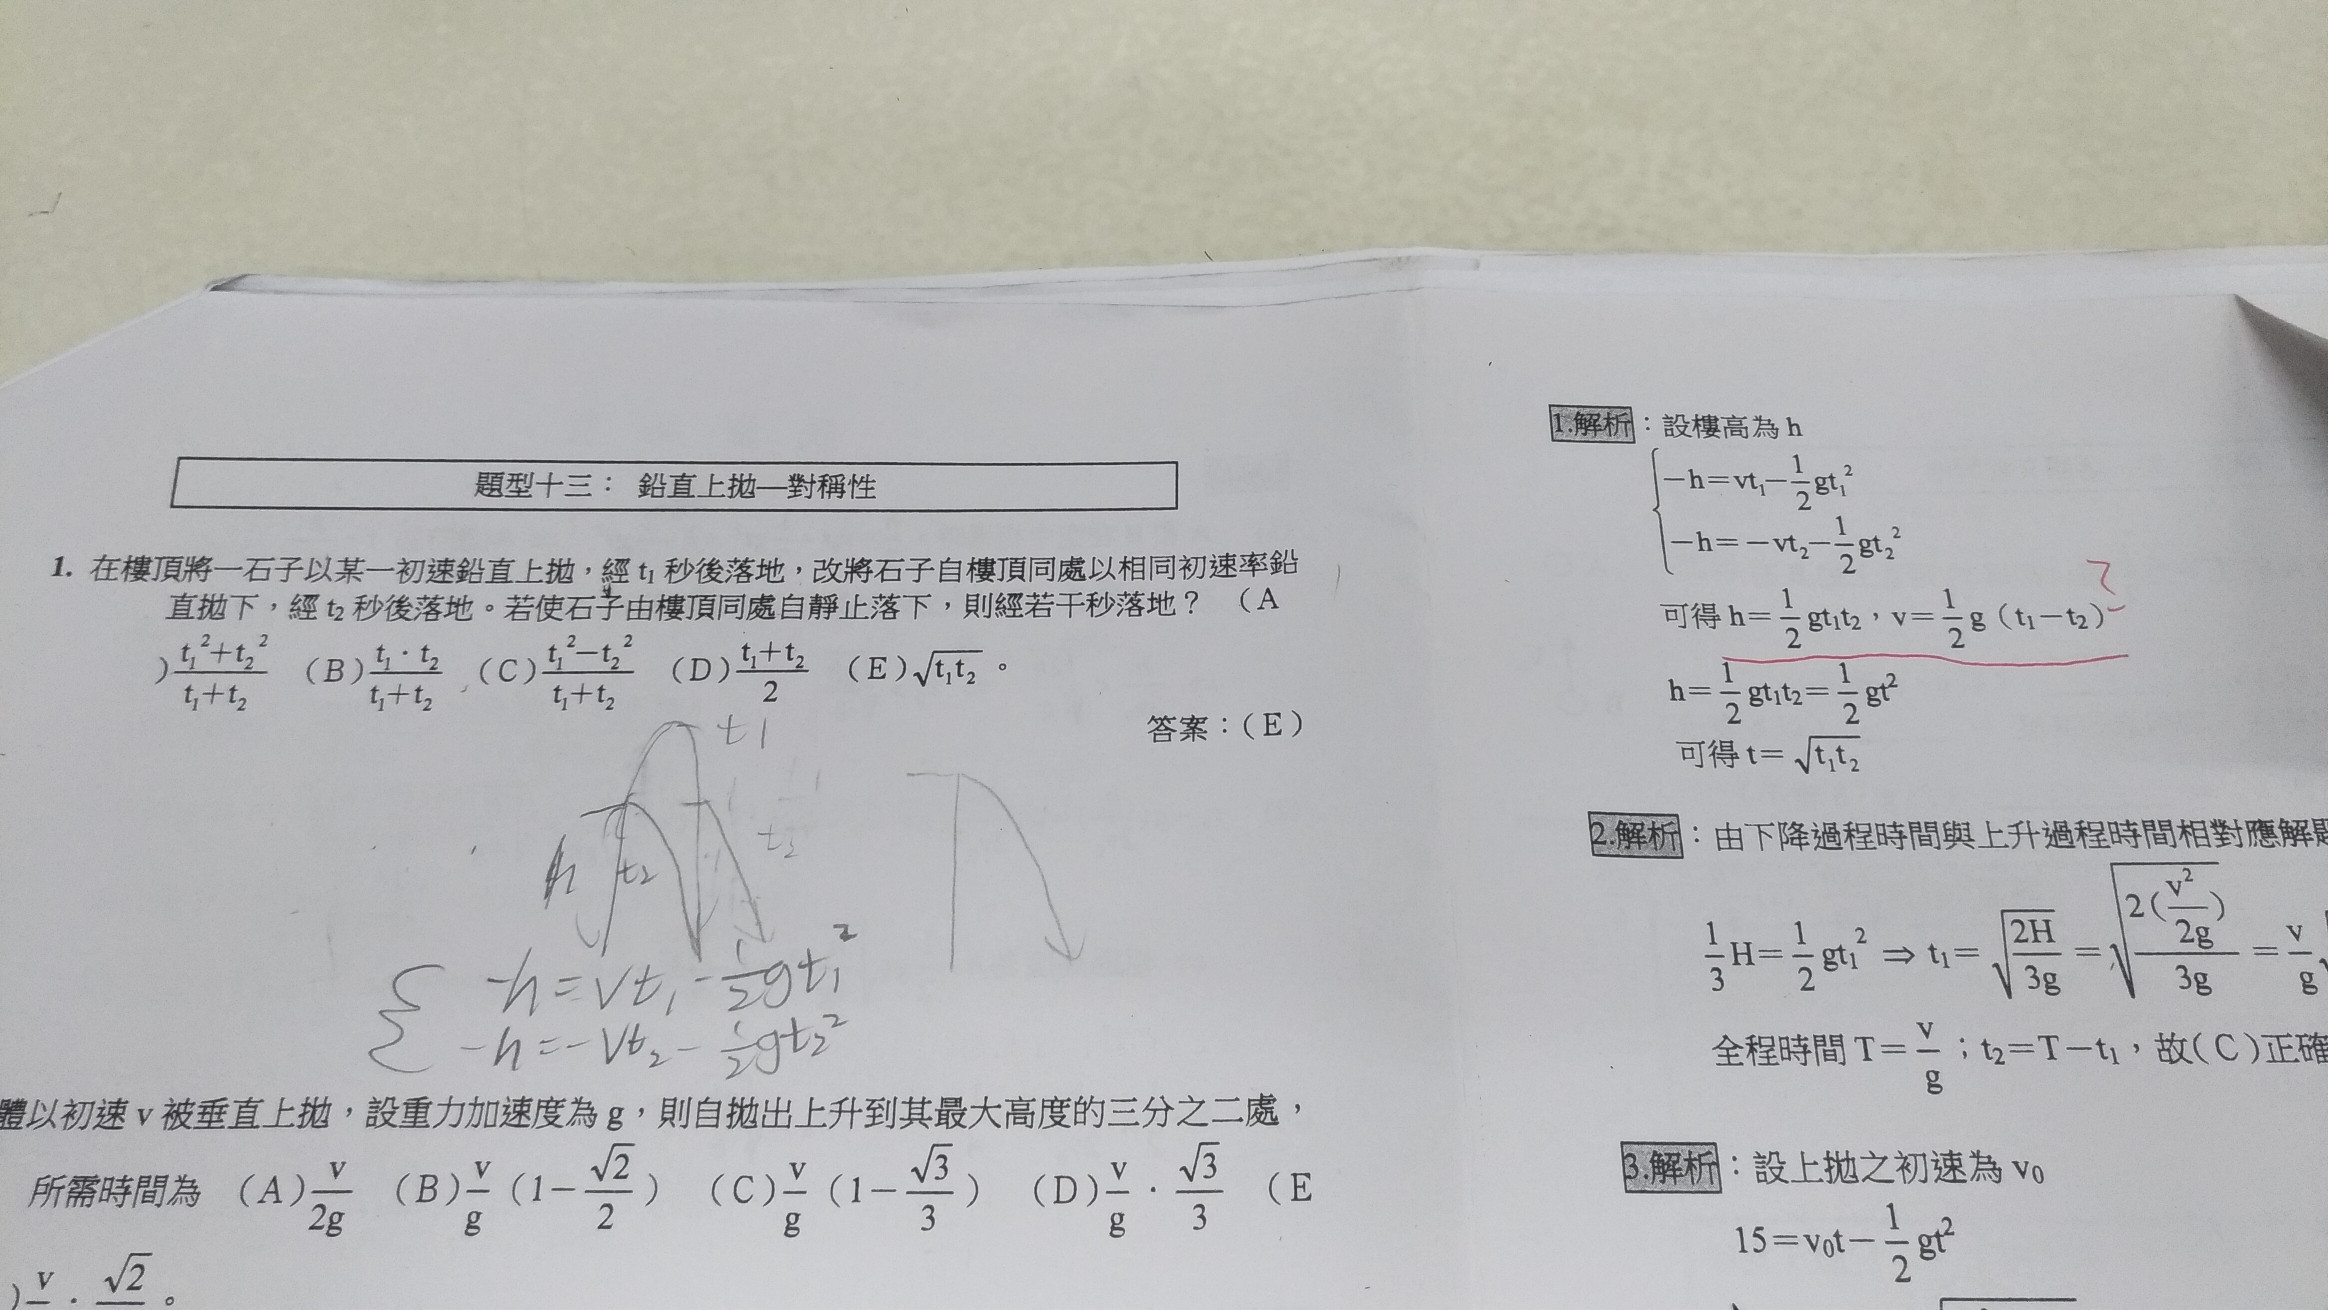 題型十三： 鉛直上拋—對稱性
1. 在樓頂將一石子以某一初速鉛直上拋，經 t₁ 秒後落地，改將石子自樓頂同處以相同初速率鉛
直拋下，經 t₂ 秒後落地。若使石子由樓頂同處自靜止落下，則經若干秒落地？ （A
）(t₁²+t₂²)/(t₁+t₂) （B）(t₁·t₂)/(t₁+t₂) （C）(t₁²−t₂²)/(t₁+t₂) （D）(t₁+t₂)/2 （E）√(t₁t₂) 。
答案：（E）
t1
h
t₂
t₂
-h=vt₁-½gt₁²
-h=-vt₂-½gt₂²
體以初速 v 被垂直上拋，設重力加速度為 g，則自拋出上升到其最大高度的三分之二處，
所需時間為 （A）v/2g （B）v/g（1−√2/2） （C）v/g（1−√3/3） （D）v/g · √3/3 （E
）v · √2 。
1.解析：設樓高為 h
−h＝vt₁−½gt₁²
−h＝−vt₂−½gt₂²
可得 h＝½gt₁t₂，v＝½g（t₁−t₂）
?
h＝½gt₁t₂＝½gt²
可得 t＝√(t₁t₂)
2.解析：由下降過程時間與上升過程時間相對應解題
⅓H＝½gt₁² ⇒ t₁＝√(2H/3g)＝√(2(v²/2g)/3g)＝v/g√
全程時間 T＝v/g；t₂＝T−t₁，故（C）正確
3.解析：設上拋之初速為 v₀
15＝v₀t−½gt²